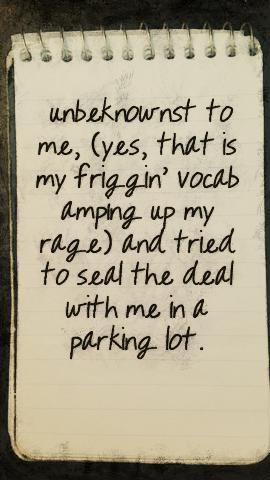 unbeknownst to
me, (yes, that is
my friggin' vocab
amping up my
rage) and tried
to seal the deal
with me in a
parking lot.